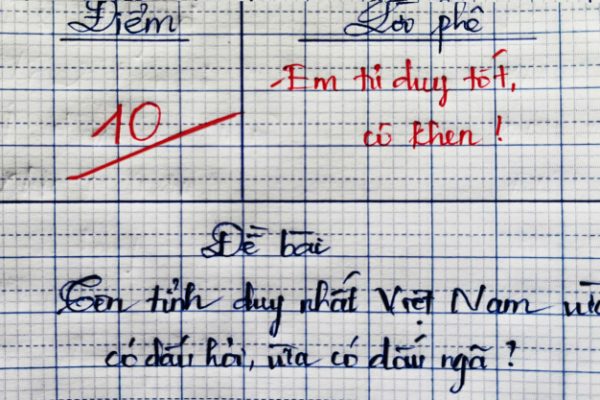 Điểm
Lời phê
Em tư duy tốt,
cô khen!
10
Đề bài
Tên tỉnh duy nhất Việt Nam vừa
có dấu hỏi, vừa có dấu ngã?